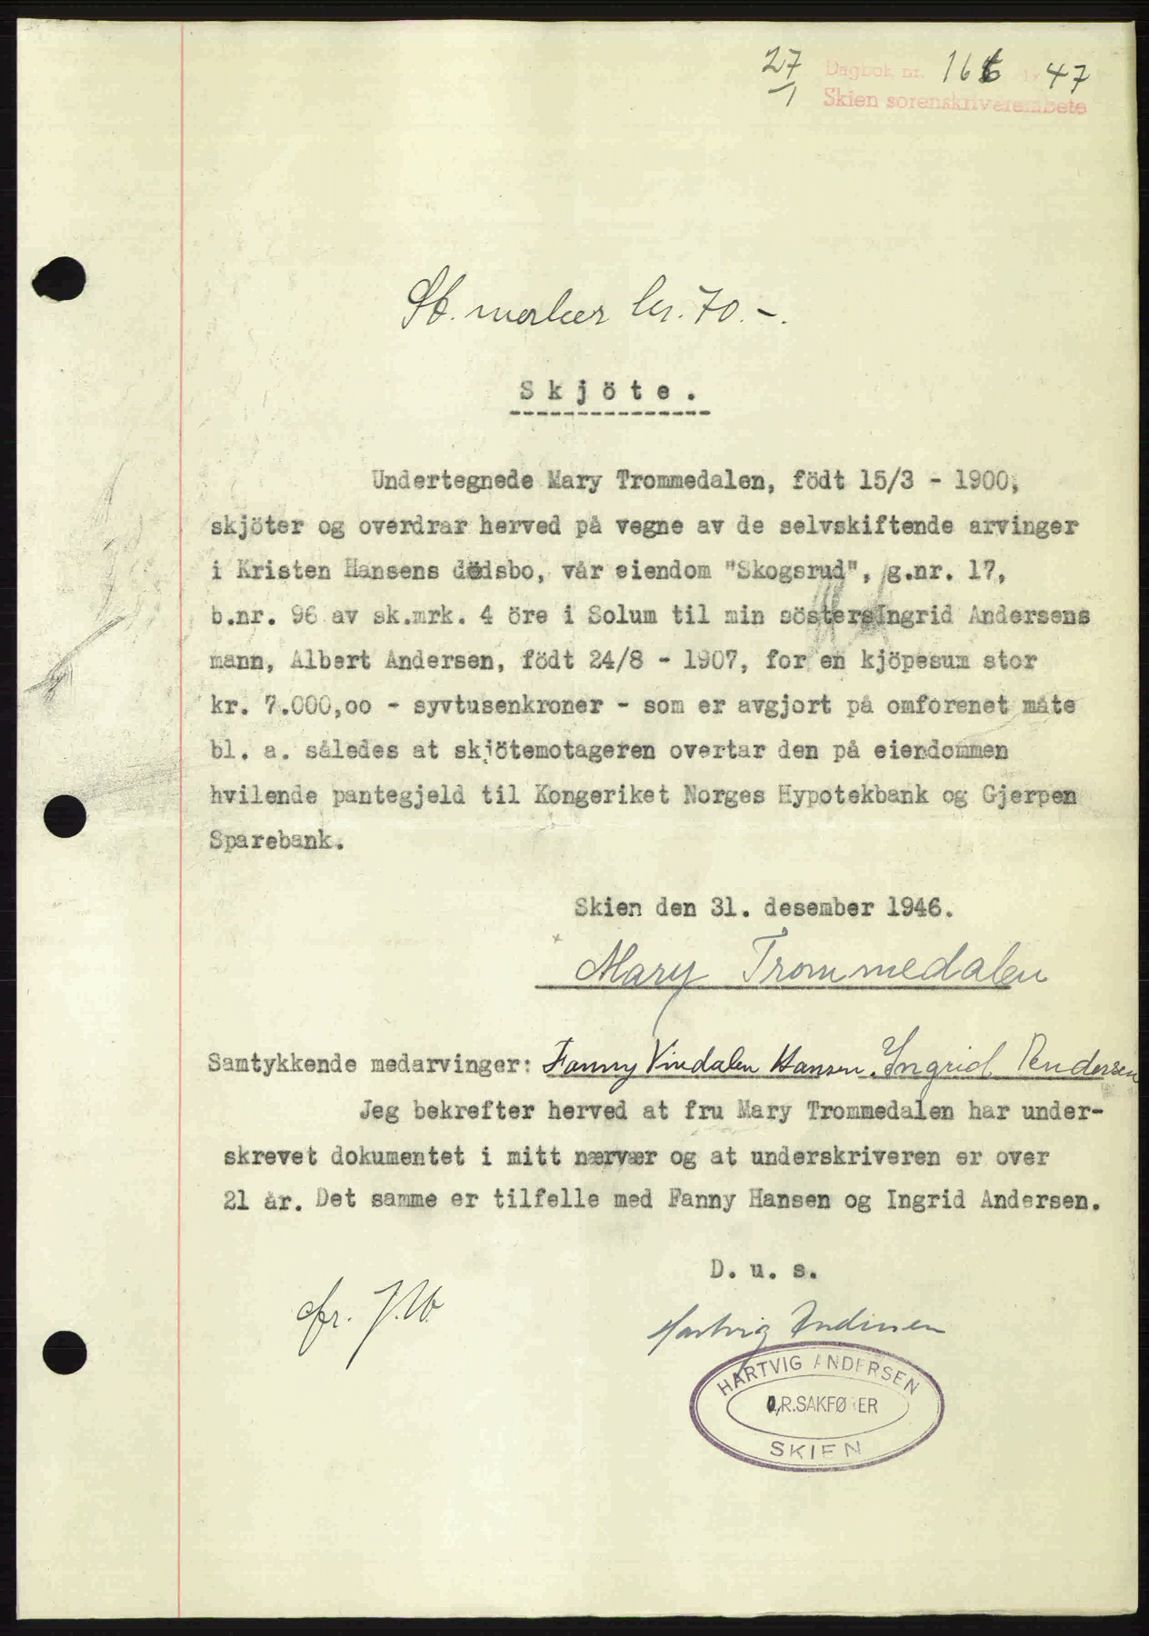 27/1 Dagbok nr. 166 19 47
Skien sorenskriverembete
St. merker kr. 70.-.
Skjöte.
Undertegnede Mary Trommedalen, födt 15/3 - 1900,
skjöter og overdrar herved på vegne av de selvskiftende arvinger
i Kristen Hansens dödsbo, vår eiendom "Skogsrud", g.nr. 17,
b.nr. 96 av sk.mrk. 4 öre i Solum til min sösters Ingrid Andersens
mann, Albert Andersen, födt 24/8 - 1907, for en kjöpesum stor
kr. 7.000,oo - syvtusenkroner - som er avgjort på omforenet måte
bl. a. således at skjötemotageren overtar den på eiendommen
hvilende pantegjeld til Kongeriket Norges Hypotekbank og Gjerpen
Sparebank.
Skien den 31. desember 1946.
Mary Trommedalen
Samtykkende medarvinger: Fanny Vindalen Hansen. Ingrid Andersen
Jeg bekrefter herved at fru Mary Trommedalen har under-
skrevet dokumentet i mitt nærvær og at underskriveren er over
21 år. Det samme er tilfelle med Fanny Hansen og Ingrid Andersen.
D. u. s.
Hartvig Andersen
HARTVIG ANDERSEN
O.R.SAKFØRER
SKIEN